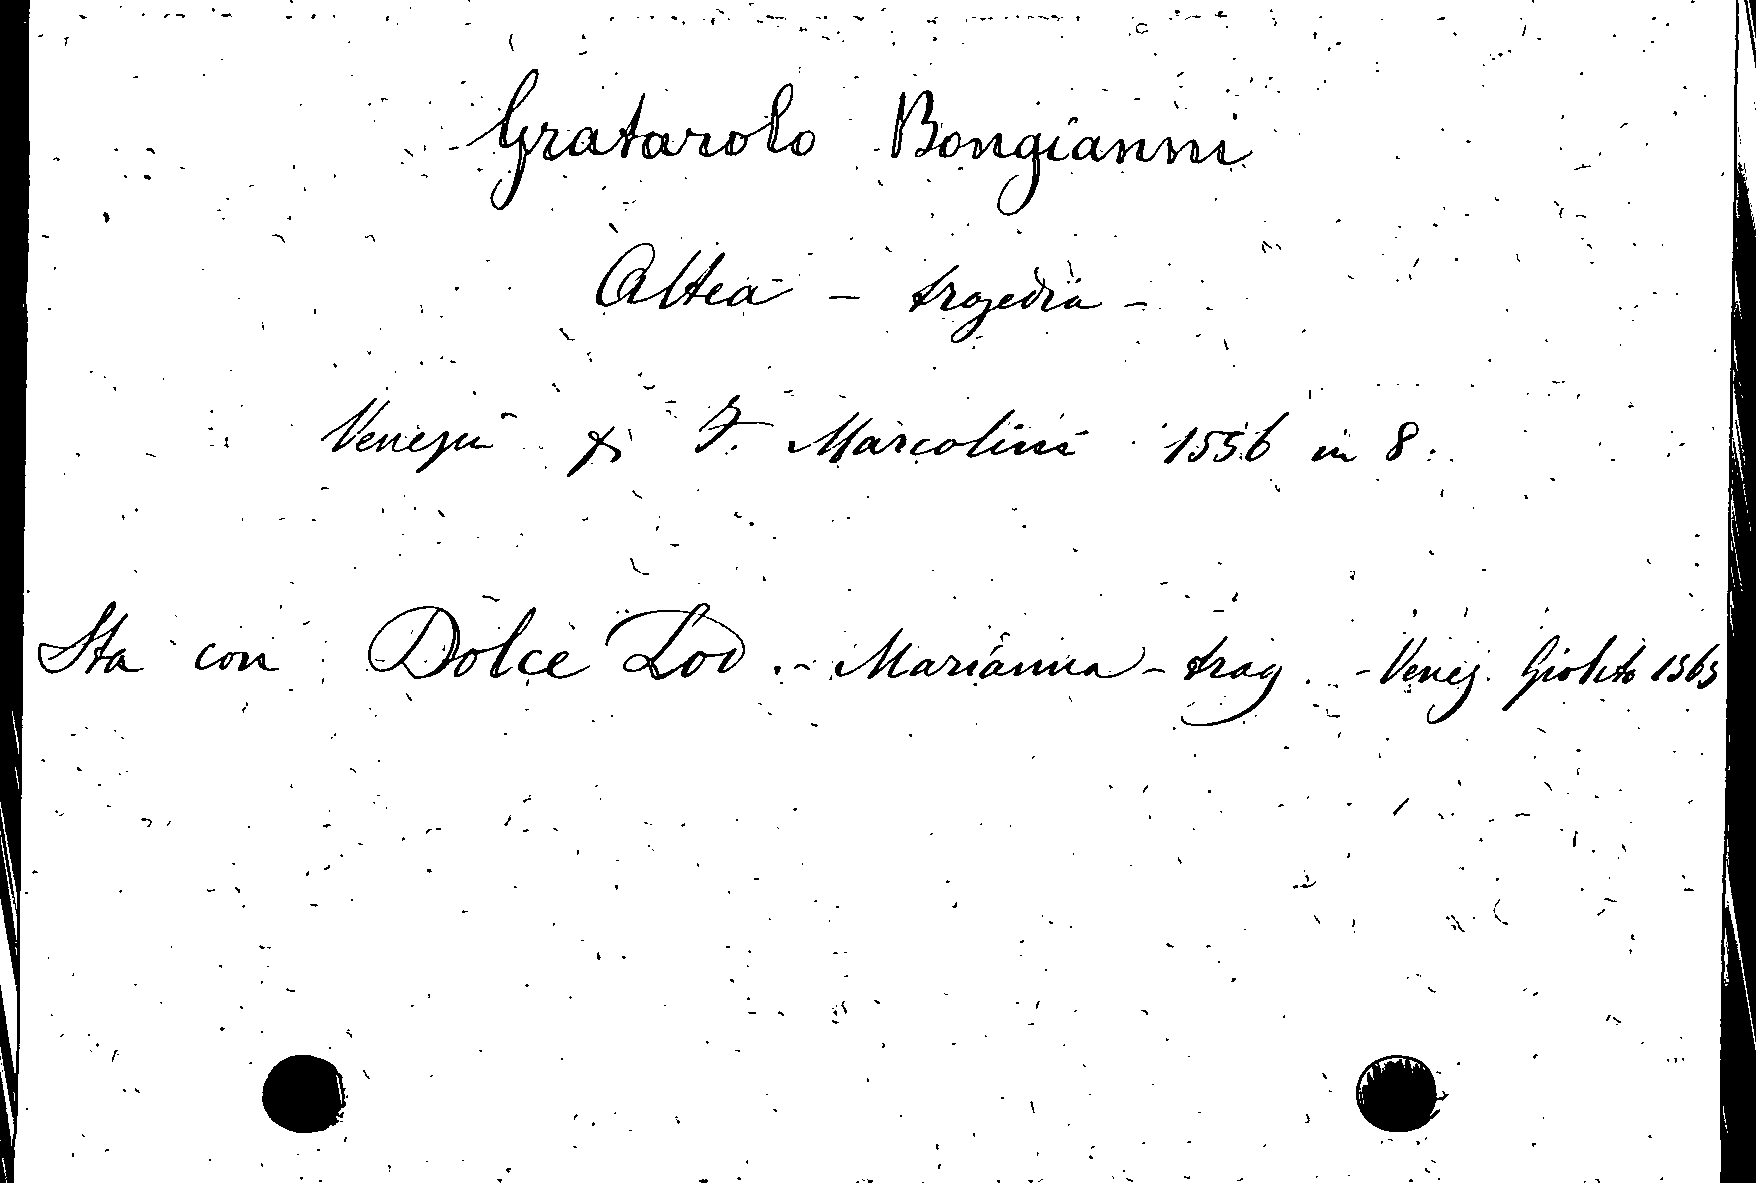 Gratarolo Bongianni
Altea - tragedia -
Venezia pi F. Marcolini 1556 in 8.
Sta con Dolce Lod. - Marianna - trag. - Venez. Giolito 1565